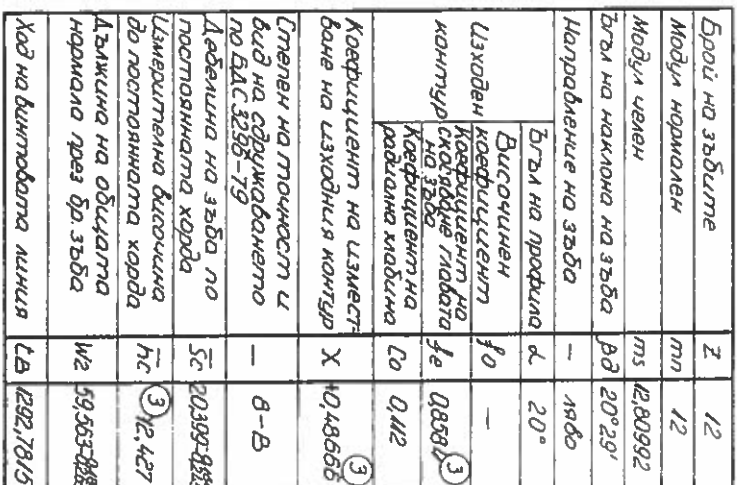 Брой на зъбите z 12
Модул нормален mn 12
Модул челен ms 12,80992
Ъгъл на наклона на зъба βд 20°29'
Направление на зъба — ляво
Изходен контур
Ъгъл на профила α 20°
Височинен коефициент fo —
Коефициент на скъсяване главата на зъба fe 0,8584 ③
Коефициент на радиална хлабина Co 0,112
Коефициент на измест-
ване на изходния контур X +0,48666 ③
Степен на точност и
вид на сдружаването
по БДС 3296-79 — 8-В
Дебелина на зъба по
постоянната хорда Sc 20,399
Измерителна височина
до постоянната хорда hc ③ 12,427
Дължина на общата
нормала през бр. зъба W2 59,563
Ход на винтовата линия tв 1292,7815